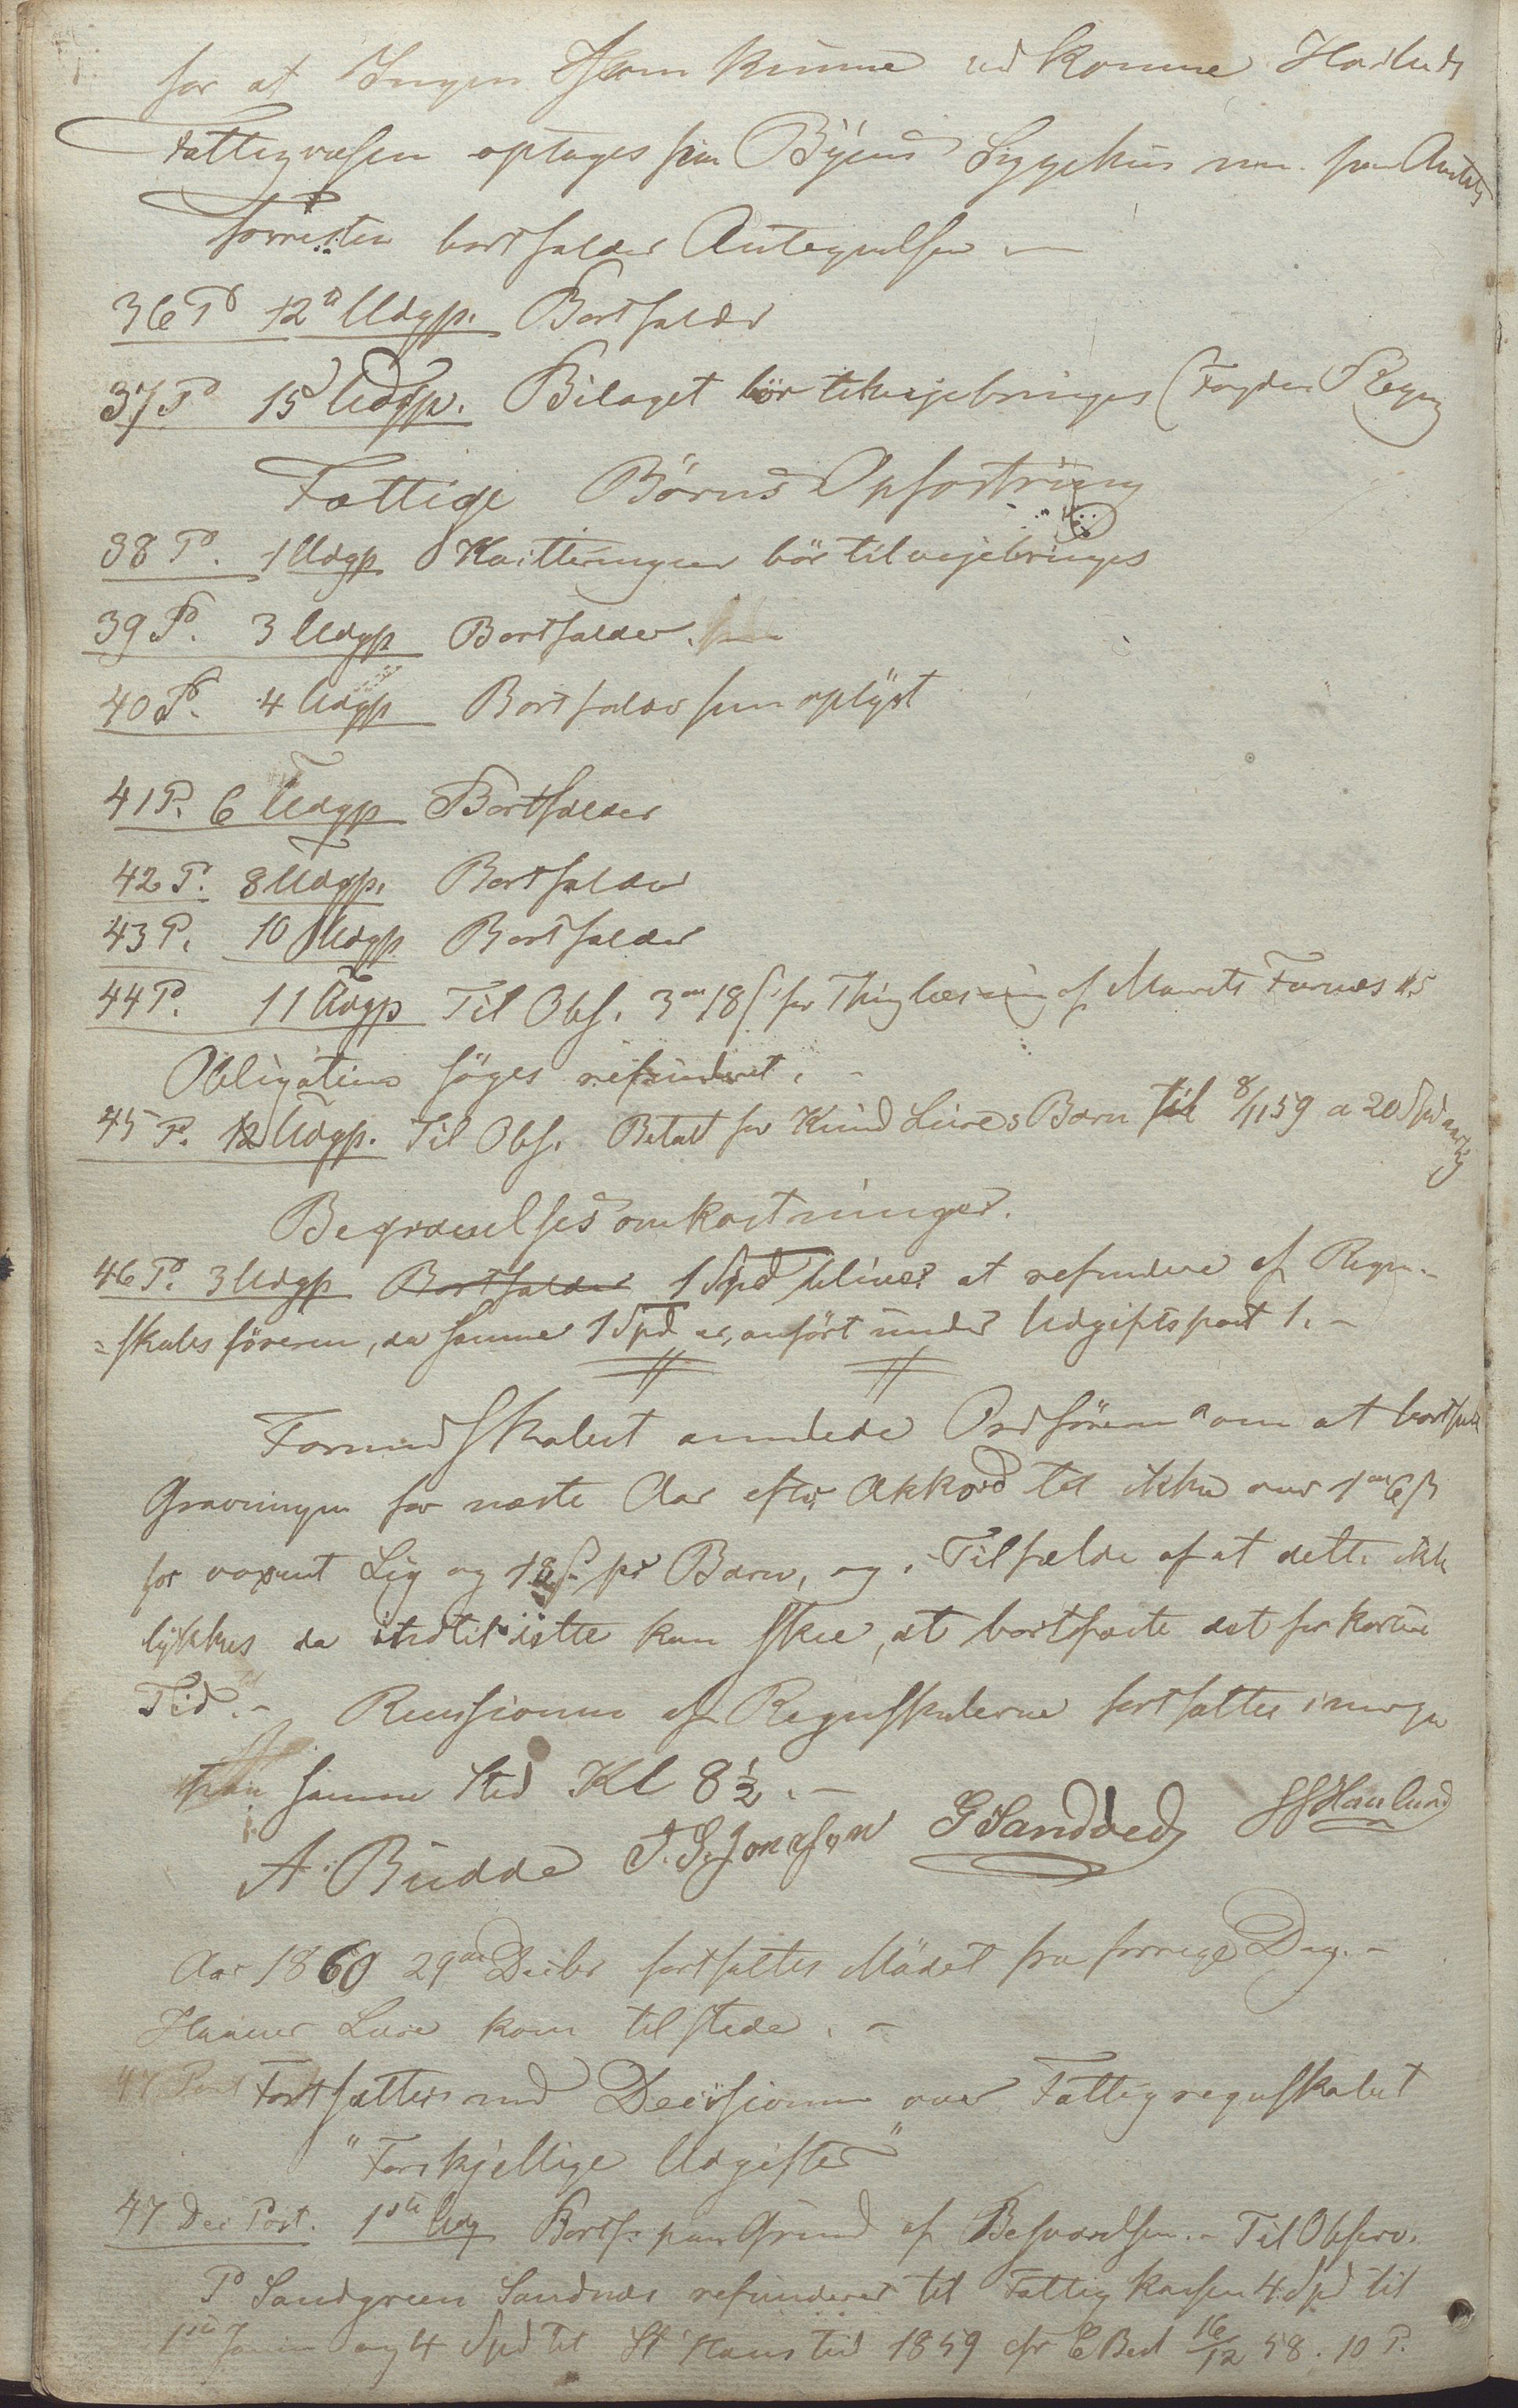 for at Ingen som kunne udkomme Havluds
Fattigvæsen optages paa Byens Sygehus men paa Amtets
Forresten bortfalder Antegnelsen —
36 P 12te Udgp. Bortfalder
37 P 15 Udgp. Bilaget bör tilvejebringes (Fogdens Regng
Fattige Börns Opfostring
38 P. 1 Udgp Kvitteringen bör tilvejebringes
39 P. 3 Udgp Bortfalder.
40 P. 4 Udgp Bortfalder som oplÿst
41 P. 6 Udgp Bortfalder
42 P. 8 Udgp. Bortfalder
43 P. 10 Udgp Bortfalder
44 P. 11 Udgp Til Obs. 3 18 ſ for Thinglæsning af Marits Furnæs
Obligation söges refunderet. -
45 P. 12 Udgp. Til Obs. Betalt for Knud Lires Barn til 8/11 59 a 20 Spd aarlig
Begravelsesomkostninger.
46 P. 3 Udgp Bortfalder 1 Spd bliver at refundere af Regn-
=skabsföreren, da samme 1 Spd er anfört under Udgiftspost 1. -
Formandskabet anmodede Ordföreren om at bortsætte
Gravningen for næste Aar efter Akkord til ikke over 1 6 ß
for voxent Lig og 18 ß pr Barn, og i Tilfælde af at dette ikke
lykkes da indtil dette kan skee, at bortsætte det for kortere
Tid. - Revisionen af Regnskaberne fortsættes imorgen
paa samme Sted Kl 8½. -
A. Budde T. G. Jonassen G Sandved Haulund
Aar 1860 29de Decbr fortsattes Mödet fra forrige Dag. -
Haaver Lura kom tilstede. -
47 Post Fortsattes med Decisionen over Fattigregnskabet
"Forskjellige Udgifter"
47 Dec Post. 1ste Udg Bortf. paa Grund af Besvarelsen. - Til Observ.
P Sandgreen Sandnæs refunderer til Fattigkassen 4 Spd til
1ste og 4 Spd til St Hans tid 1859 cfr 16/12 58. 10 P.